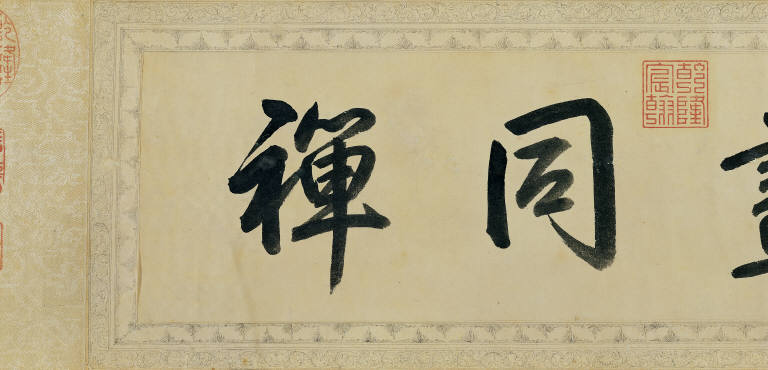 同禪
乾隆
宸翰